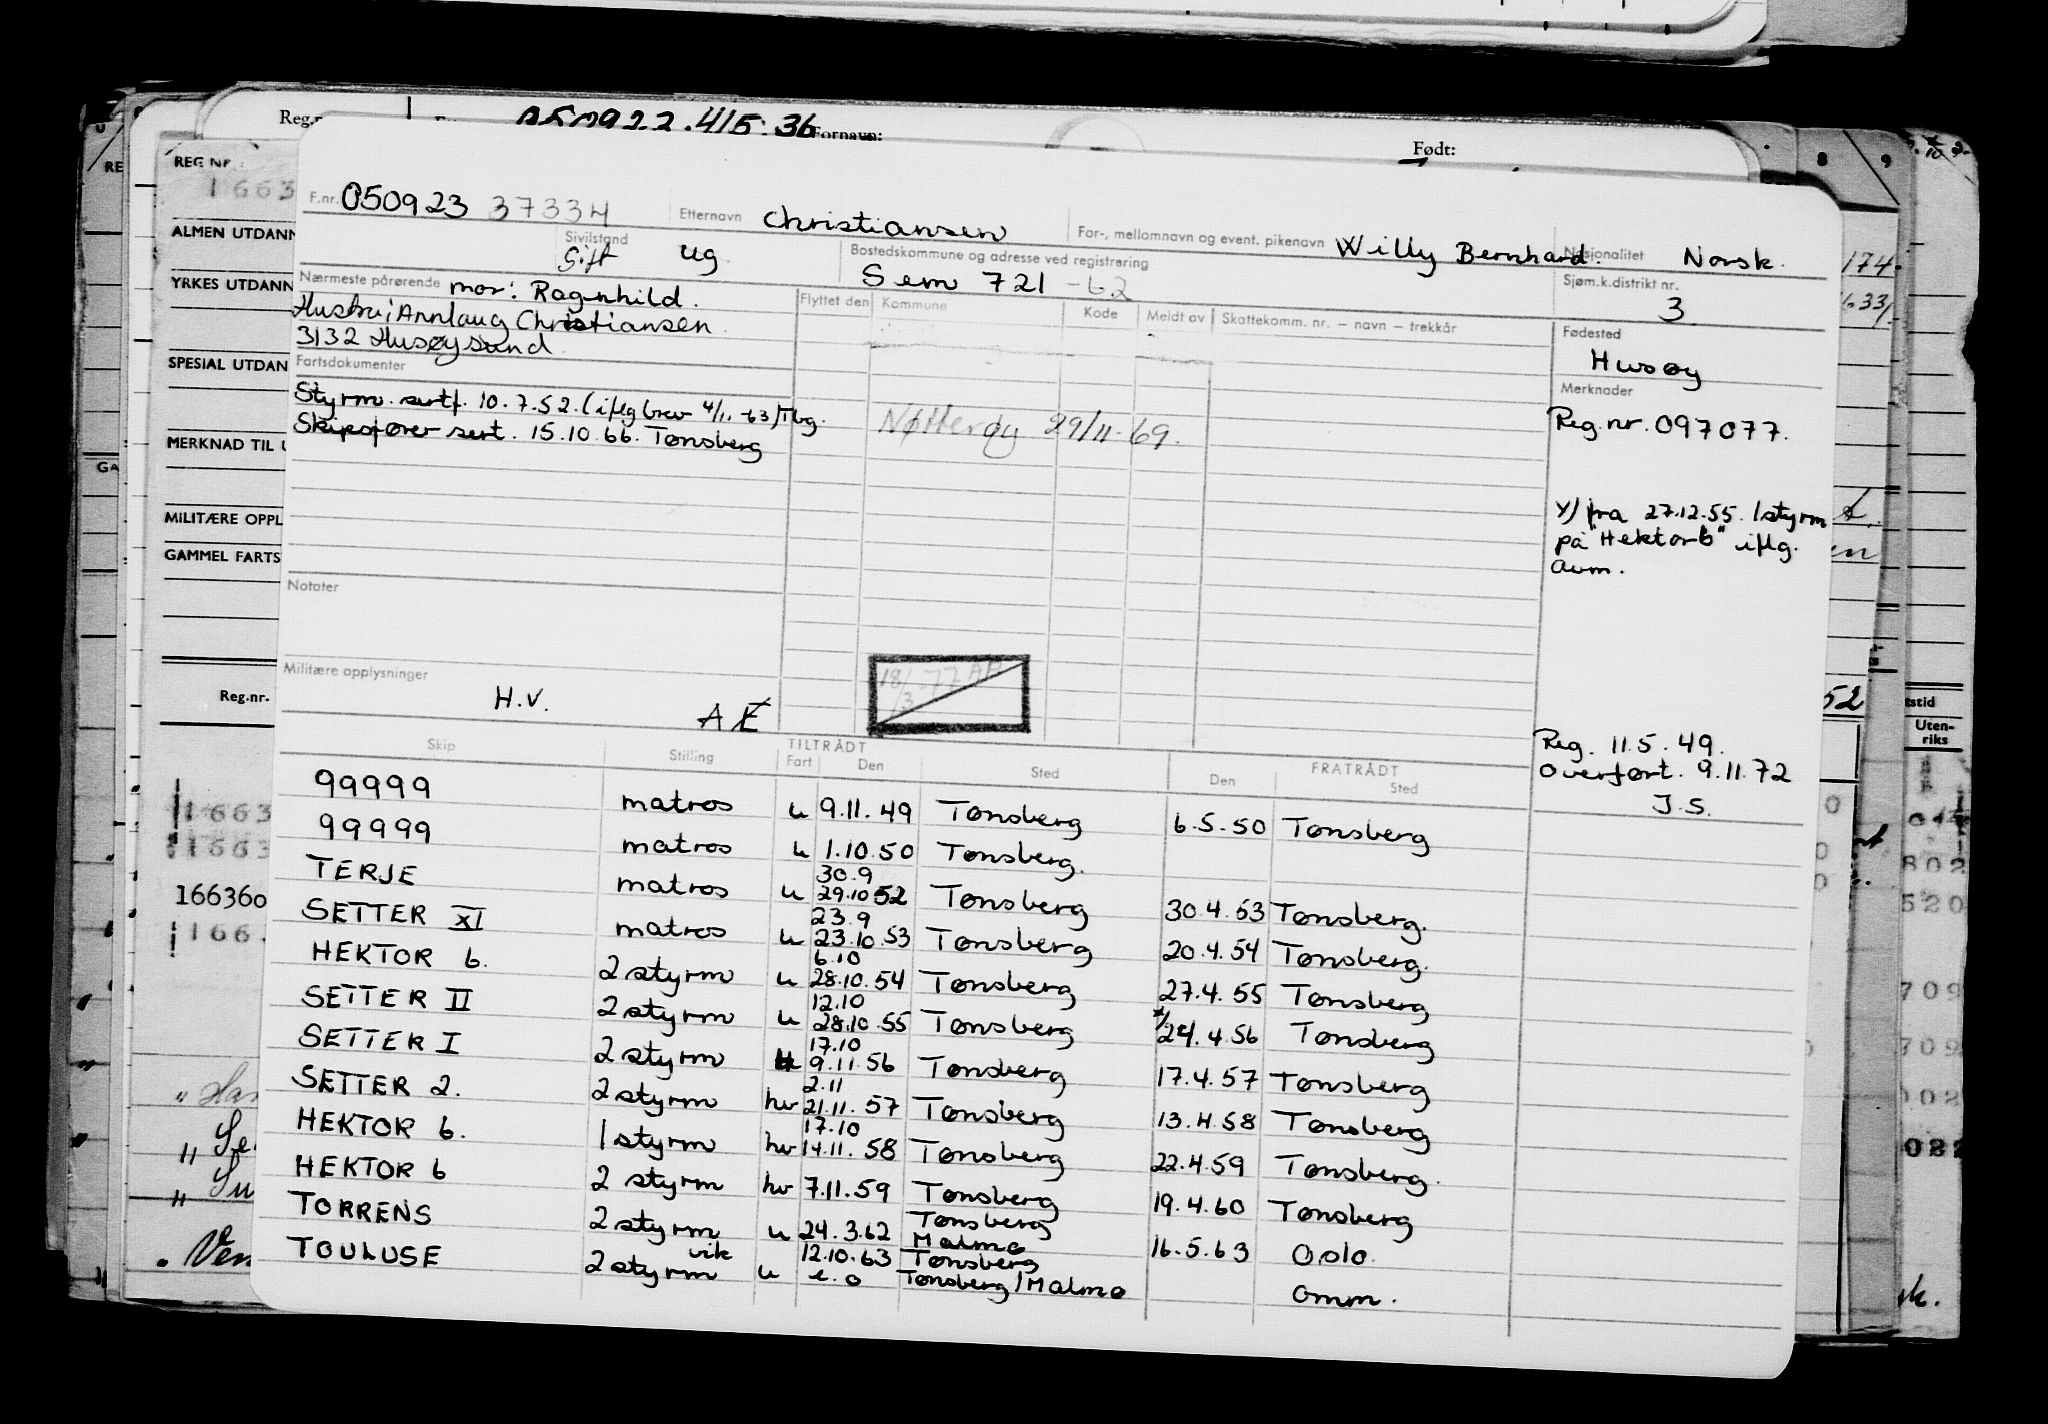 Reg.n
Fornavn:
Født:
8 9
REG NR.
1663
F.nr. 050923 37334 Etternavn Christiansen For-, mellomnavn og event. pikenavn Willy Bernhard. Nasjonalitet Norsk.
ALMEN UTDANN
Sivilstand Gift ug Bostedskommune og adresse ved registrering Sem 721 -62 Sjøm.k.distrikt nr. 3
174
YRKES UTDANN
Nærmeste pårørende mor: Ragnhild.
Hustru: Annlaug Christiansen
3132 Husøysund
Flyttet den Kommune Kode Meldt av Skattekomm. nr. – navn – trekkår
Fødested
Husøy
633/-
SPESIAL UTDAN
Fartsdokumenter
Styrm. sertf. 10.7.52. (iflg brev 4/11-63/Tbg.
Skipsfører sert. 15.10.66. Tønsberg
Nøtterøy 29/11-69.
Merknader
Reg.nr. 097077.
MERKNAD TIL U
GA
Y) fra 27.12.55. 1styrm
på "Hektor 6" iflg.
avm.
MILITÆRE OPPL
GAMMEL FARTS
Notater
Militære opplysninger
H.V. AE
18/3-77 AH
Reg.nr.
52
tstid
Uten-
riks
Reg. 11.5.49.
Overført. 9.11.72
J.S.
Skip Stilling TILTRÅDT Fart Den Sted FRATRÅDT Den Sted
99999 matros u 9.11.49 Tønsberg 6.5.50 Tønsberg
99999 matros u 1.10.50 Tønsberg.
TERJE matros u 30.9 29.10 52 Tønsberg 30.4.53 Tønsberg.
SETTER XI matros u 23.9 23.10.53 Tønsberg 20.4.54 Tønsberg.
HEKTOR 6. 2 styrm u 6.10 28.10.54 Tønsberg 27.4.55 Tønsberg
SETTER II 2 styrm u 12.10 28.10.55 Tønsberg 24.4.56 Tønsberg
SETTER I 2 styrm u 17.10 9.11.56 Tønsberg 17.4.57 Tønsberg
SETTER 2. 2 styrm hv 2.11 21.11.57 Tønsberg 13.4.58 Tønsberg
HEKTOR 6. 1 styrm hv 17.10 14.11.58 Tønsberg 22.4.59 Tønsberg.
HEKTOR 6 2 styrm hv 7.11.59 Tønsberg 19.4.60 Tønsberg
TORRENS 2 styrm u 24.3.62 Tønsberg Malmø 16.5.63 Oslo.
TOULUSE 2 styrm vik u 12.10.63 e.o Tønsberg Tønsberg/Malmø omm.
1663
1663
166360
1663
802
520
709
709